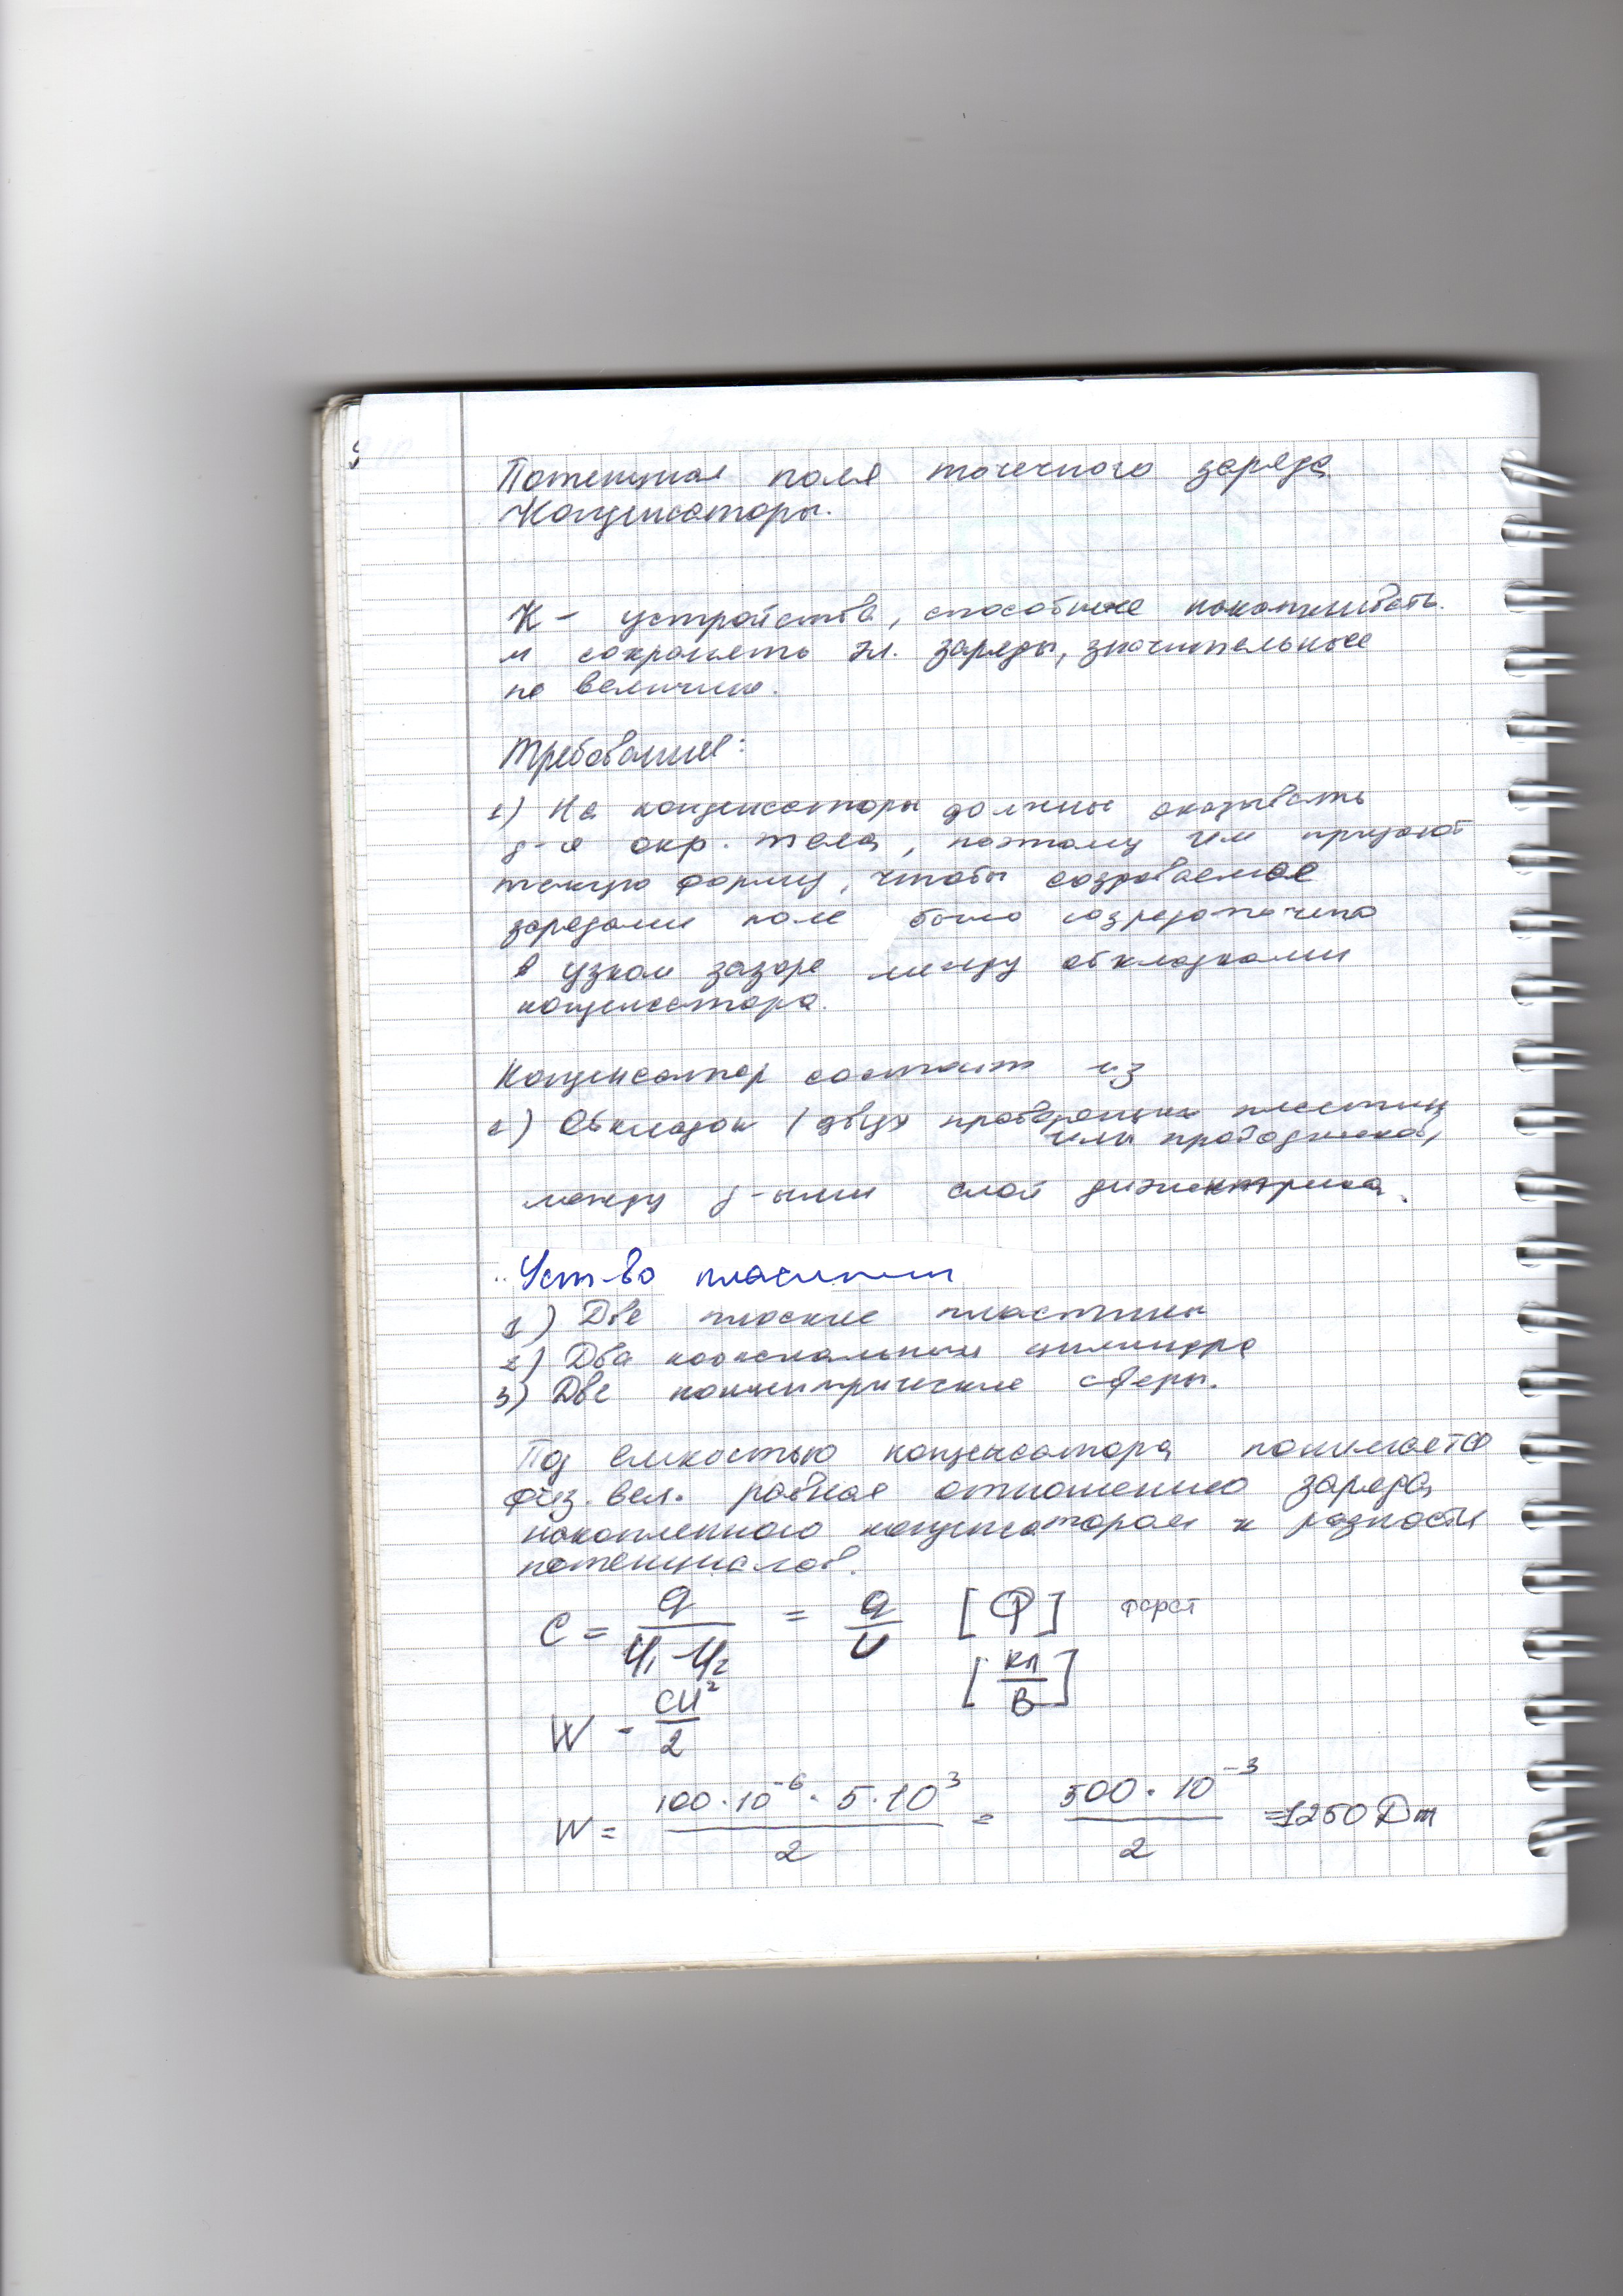 Потенциал поля точечного заряда
Конденсаторы.
К - устройства, способные накапливать
и сохранять эл. заряды, значительные
по величине.
Требования:
1) На конденсаторы должны оказывать
д-е окр. тела, поэтому им придают
такую форму, чтобы создаваемое
зарядами поле было сосредоточено
в узком зазоре между обкладками
конденсатора.
Конденсатор состоит из
1) Обкладок (двух проводящих пластин
или проводников,
между д-ыми слой диэлектрика.
Уст-во пластин
1) Две плоские пластины
2) Два коаксиальных цилиндра
3) Две концентрические сферы.
Под емкостью конденсатора понимается
физ. вел. равная отношению заряда,
накопленного конденсатором к разности
потенциалов.
C = q / (φ₁ - φ₂) = q / U [Ф] фарат
[Кл / В]
W - CU² / 2
W = 100·10⁻⁶·5·10³ / 2 = 500·10⁻³ / 2 = 1250 Дж